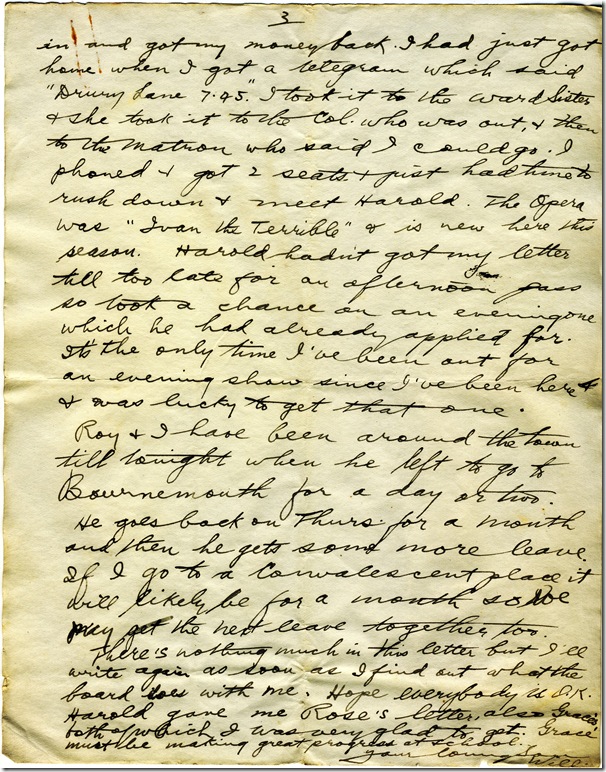 3
in and got my money back. I had just got
home when I got a telegram which said
"Drury Lane 7.45". I took it to the Ward Sister
& she took it to the Col. who was out, & then
to the Matron who said I could go. I
phoned & got 2 seats & just had time to
rush down & meet Harold. The Opera
was "Ivan the Terrible" & is new here this
season. Harold hadn't got my letter
till too late for an afternoon pass
so took a chance on an evening one
which he had already applied for.
It's the only time I've been out for
an evening show since I've been here
& was lucky to get that one.
Roy & I have been around the town
till tonight when he left to go to
Bournemouth for a day or two.
He goes back on Thurs. for a month
and then he gets some more leave.
If I go to a Convalescent place it
will likely be for a month so we
may get the next leave together too.
There's nothing much in this letter but I'll
write again as soon as I find out what the
board does with me. Hope everybody is O.K.
Harold gave me Rose's letter, also Gracie's
both of which I was very glad to get. Grace
must be making great progress at school.
Your loving Son
Will.